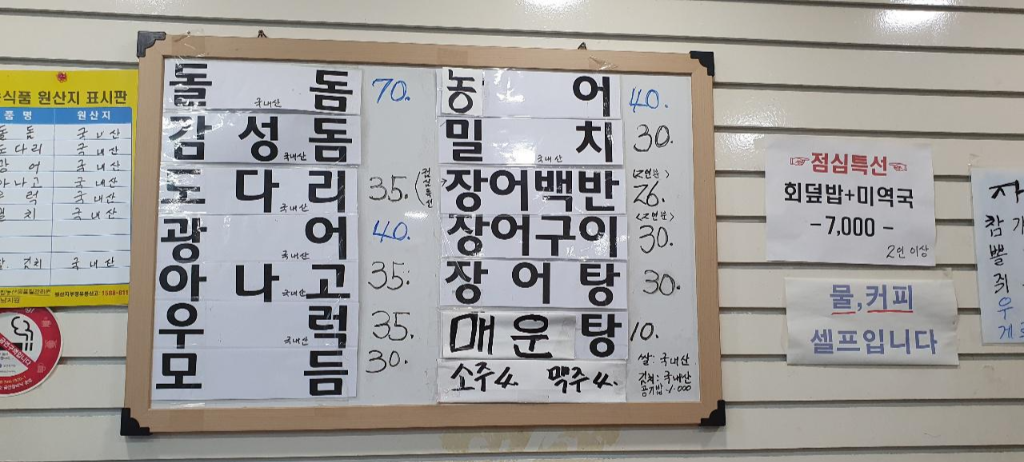 식품 원산지 표시판
품 명 원산지
돔 국내산
도다리 국내산
광 어 국내산
아나고 국내산
우 럭 국내산
멸 치 국내산
김치 국내산
돌 돔 국내산 70.
감 성 돔 국내산
도 다 리 국내산 35.
광 어 국내산 40.
아 나 고 국내산 35.
우 럭 국내산 35.
모 듬 30.
농 어 40.
밀 치 국내산 30.
<점심특선> 장어백반 <2인분> 26.
장어구이 <2인분> 30.
장 어 탕 30.
매 운 탕 10.
소주 4. 맥주 4.
쌀: 국내산
김치: 국내산
공기밥-1,000
점심특선
회덮밥+미역국
-7,000 -
2인 이상
물,커피
셀프입니다
자
참 개
뽈
쥐
우
게